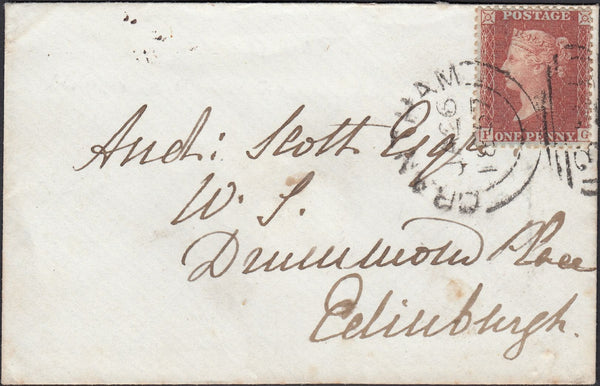 POSTAGE
ONE PENNY
G
Andw Scott Esqr
W. S.
Drummond Place
Edinburgh.